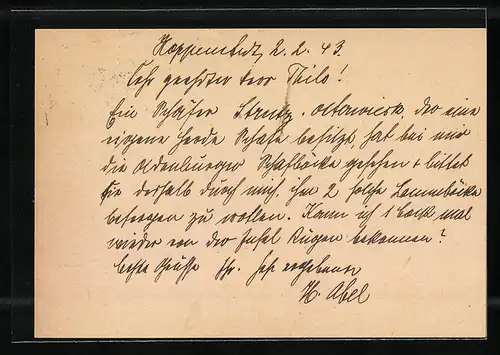 Hoppenstedt, 2. 2. 43.
Sehr geehrter Herr Thilo!
Ein Schäfer Strutz, Osterwieck, der eine
eigene Herde Schafe besitzt, hat bei mir
die Oldenburger Schafböcke gesehen + bittet
Sie deshalb durch mich, ihm 2 solche Lammböcke
besorgen zu wollen. Kann ich 1 Bock mal
wieder von der Insel Rügen bekommen?
beste Grüsse Ihr sehr ergebener
H. Abel